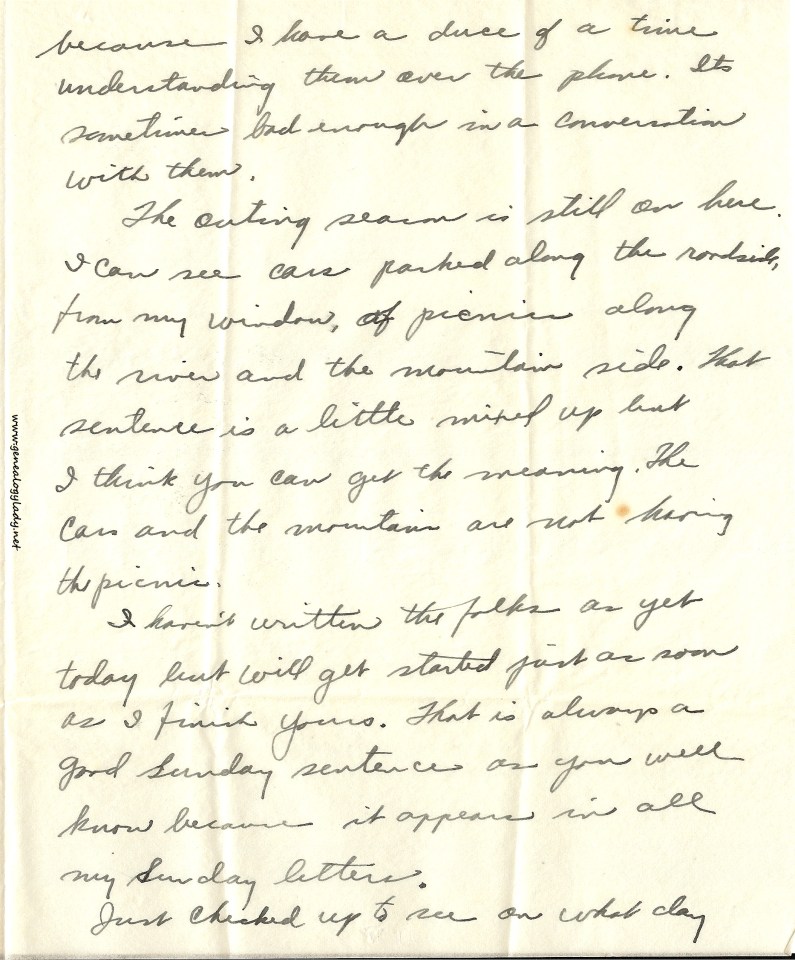 because I have a duce of a time
understanding them over the phone. Its
sometimes bad enough in a conversation
with them.
The outing season is still on here.
I can see cars parked along the roadside,
from my window, of picnics along
the river and the mountain side. That
sentence is a little mixed up but
I think you can get the meaning. The
Cars and the mountain are not having
the picnic.
I haven't written the folks as yet
today but will get started just as soon
as I finish yours. That is always a
good Sunday sentence as you well
know because it appears in all
my Sunday letters.
Just checked up to see on what day
www.genealogylady.net